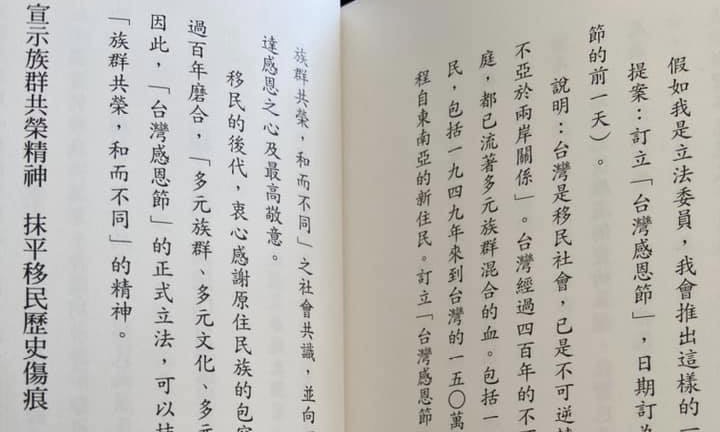 假如我是立法委員，我會推出這樣的一
提案：訂立「台灣感恩節」，日期訂為
節的前一天）。
說明：台灣是移民社會，已是不可逆
不亞於兩岸關係」。台灣經過四百年的不
庭，都已流著多元族群混合的血。包括一
民，包括一九四九年來到台灣的一五〇萬
程自東南亞的新住民。訂立「台灣感恩節
族群共榮，和而不同」之社會共識，並向
達感恩之心及最高敬意。
移民的後代，衷心感謝原住民族的包容
過百年磨合，「多元族群、多元文化、多元
因此，「台灣感恩節」的正式立法，可以
「族群共榮，和而不同」的精神。
宣示族群共榮精神　抹平移民歷史傷痕